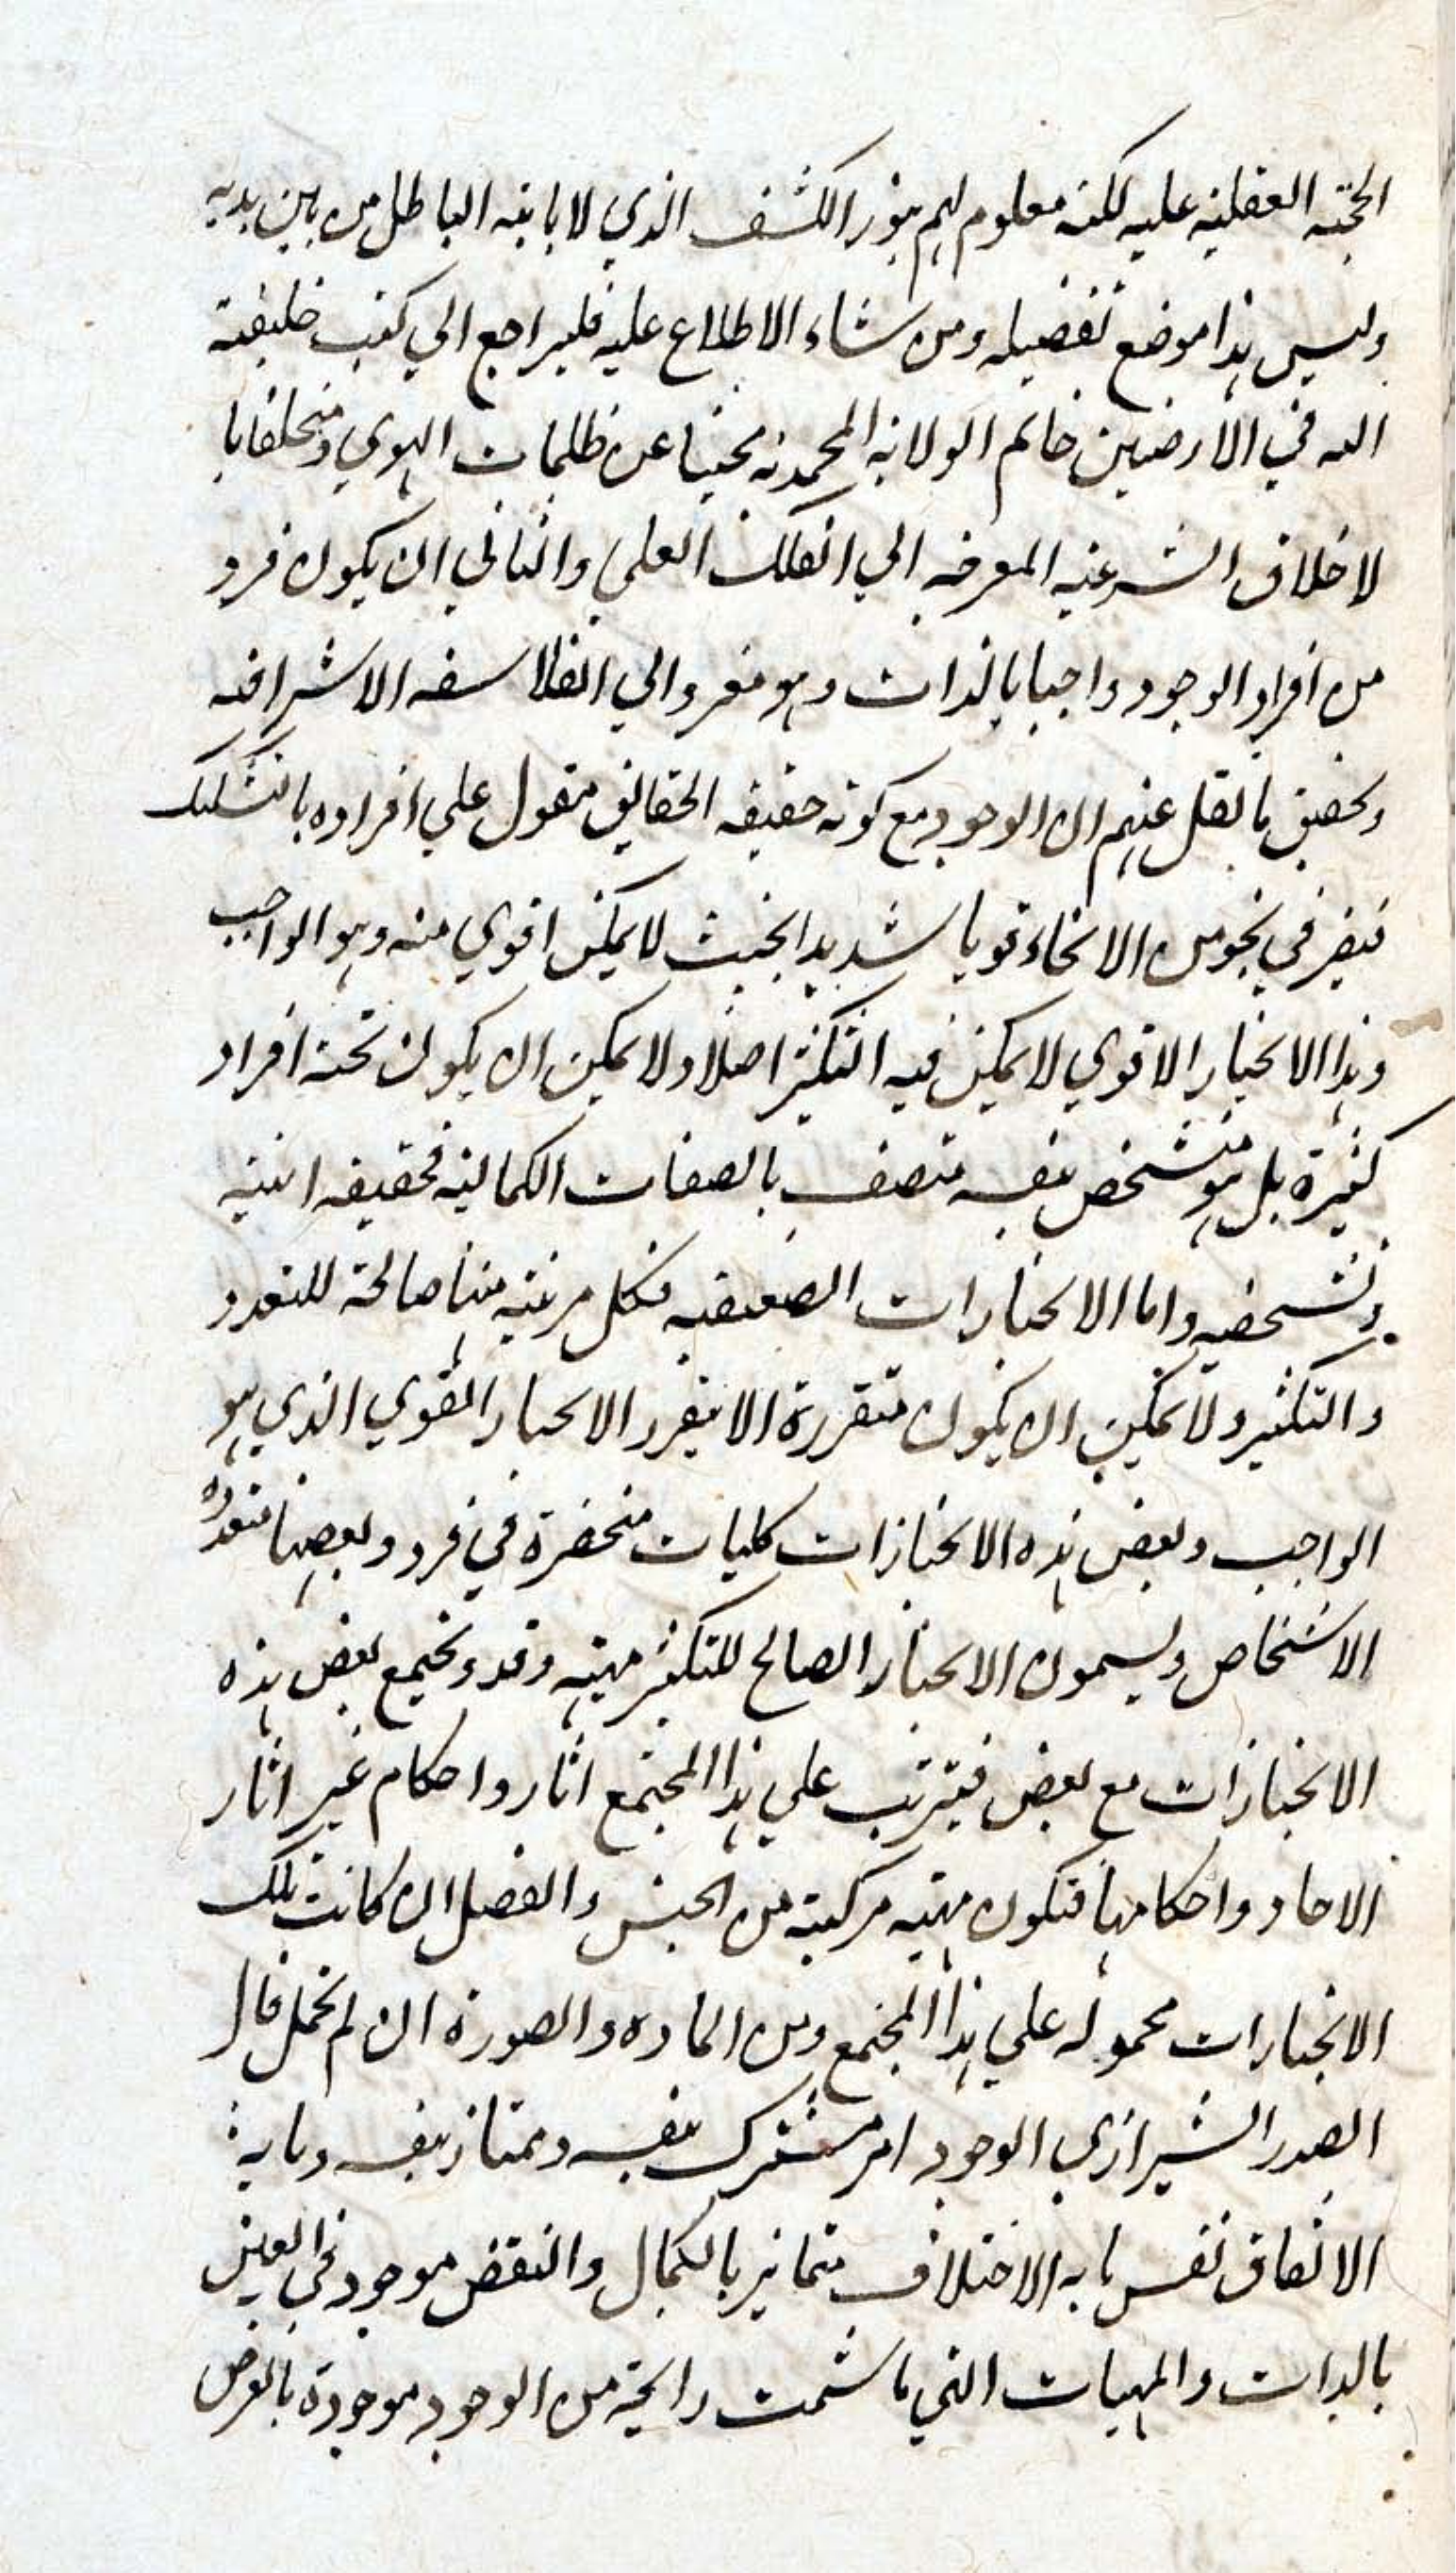 الحجة العقلية عليه لكنه معلوم لهم بنور الكشف الذي لا ياتيه الباطل من بين يديه
وليس هذا موضع تفصيله ومن شاء الاطلاع عليه فليراجع الي كتب خليفة
الله في الارضين خاتم الولاية المحمدية مجتنبا عن ظلمات الهوي ومتخلقا با
لاخلاق الشرعية المعرضه الي الفلك العلي والثاني ان يكون فرد
من افراد الوجود واجبا بالذات وهو معزو الي الفلاسفه الاشراقيه
وتحقيق ما نقل عنهم ان الوجود مع كونه حقيقه الحقائق مقول علي افراده بالتشكيك
فيتقرر في نحو من الانحاء قويا شديدا بحيث لا يمكن اقوي منه وهو الواجب
وهذا الانحياز الاقوي لا يمكن فيه التكثر اصلا ولا يمكن ان يكون تحته افراد
كثيرة بل هو متشخص بنفسه متصف بالصفات الكمالية فحقيقه انيته
وتشخصيه واما الانحيازات الضعيفه فكل مرتبه منها صالحة للتعدد
والتكثير ولا يمكن ان يكون متقررة الا بتقرر الانحياز القوي الذي هو
الواجب وبعض هذه الانحيازات كليات منحصرة في فرد وبعضها متعدده
الاشخاص ويسمون الانحياز الصالح للتكثر مهية وقد وتجتمع بعض هذه
الانحيازات مع بعض فيترتب علي هذا المجتمع اثار واحكام غير اثار
الاحاد واحكامها فتكون مهية مركبة من الجنس والفصل ان كانت تلك
الانحيازات محموله علي هذا المجتمع ومن الماده والصورة ان لم تحمل قال
الصدر الشيرازي الوجود امر مشترك بنفسه وممتاز بنفسه وما به
الاتفاق نفس ما به الاختلاف متمايز بالكمال والنقص موجود في العين
بالذات والمهيات التي ما شمت رايحة من الوجود موجودة بالعرض